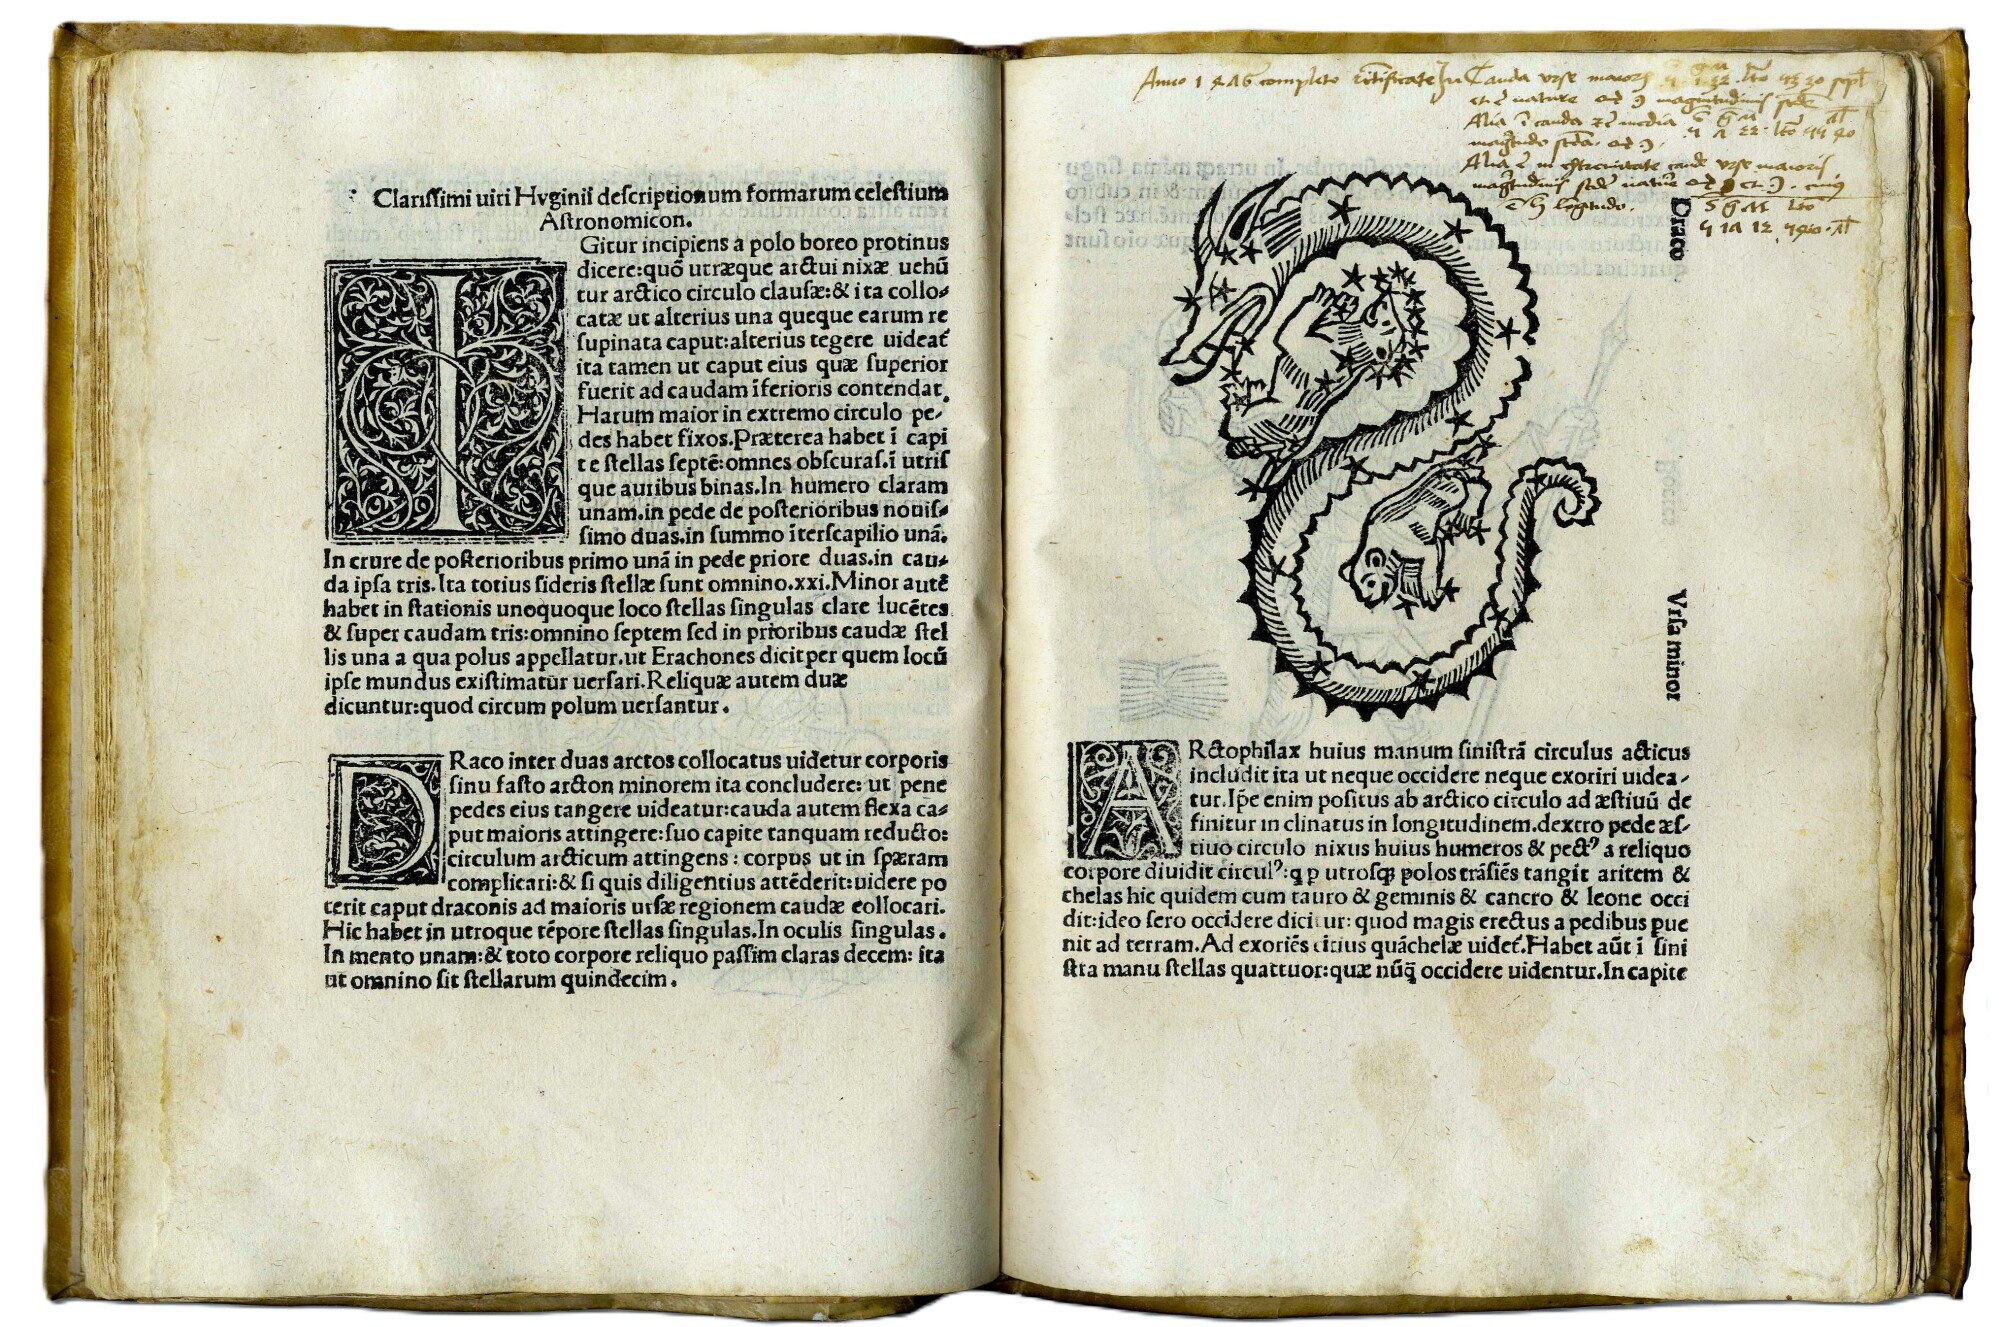 Clarissimi uiri Hyginii descriptionum formarum celestium
Astronomicon.
IGitur incipiens a polo boreo protinus
dicere:quõ utræque arctui nixæ uehũ
tur arctico circulo clausæ:& ita collo-
catæ ut alterius una queque earum re
supinata caput:alterius tegere uideat̃
ita tamen ut caput eius quæ superior
fuerit ad caudam ĩferioris contendat.
Harum maior in extremo circulo pe-
des habet fixos.Præterea habet ĩ capi
te stellas septẽ:omnes obscuras.ĩ utris
que auribus binas.In humero claram
unam.in pede de posterioribus nouis-
simo duas.in summo ĩterscapilio unã.
In crure de posterioribus primo unã in pede priore duas.in cau-
da ipsa tris.Ita totius sideris stellæ sunt omnino.xxi.Minor autẽ
habet in stationis unoquoque loco stellas singulas clare lucẽtes
& super caudam tris:omnino septem sed in prioribus caudæ stel
lis una a qua polus appellatur.ut Erachones dicit per quem locũ
ipse mundus existimatur uersari.Reliquæ autem duæ
dicuntur:quod circum polum uersantur.
DRaco inter duas arctos collocatus uidetur corporis
sinu fasto arcton minorem ita concludere: ut pene
pedes eius tangere uideatur:cauda autem flexa ca-
put maioris attingere:suo capite tanquam reducto:
circulum arcticum attingens : corpus ut in spæram
complicari:& si quis diligentius attẽderit:uidere po
terit caput draconis ad maioris ursæ regionem caudæ collocari.
Hic habet in utroque tẽpore stellas singulas.In oculis singulas.
In mento unam:& toto corpore reliquo passim claras decem: ita
ut omnino sit stellarum quindecim.
Anno 1 4 completo Cauda urse maioris
nature magnitudinis
Alia cauda media
Alia caude urse maioris
Draco
Vrsa minor
ARctophilax huius manum sinistrã circulus acticus
includit ita ut neque occidere neque exoriri uidea-
tur.Ip̃e enim positus ab arctico circulo ad æstiuũ de
finitur in clinatus in longitudinem.dextro pede æs-
tiuo circulo nixus huius humeros & pectꝰ a reliquo
corpore diuidit circulꝰ:q p utrosq polos trãsiẽs tangit aritem &
chelas hic quidem cum tauro & geminis & cancro & leone occi
dit:ideo sero occidere dicitur: quod magis erectus a pedibus pue
nit ad terram.Ad exoriẽs citius quãchelæ uidet̃.Habet aũt ĩ sini
stra manu stellas quattuor:quæ nũq̃ occidere uidentur.In capite